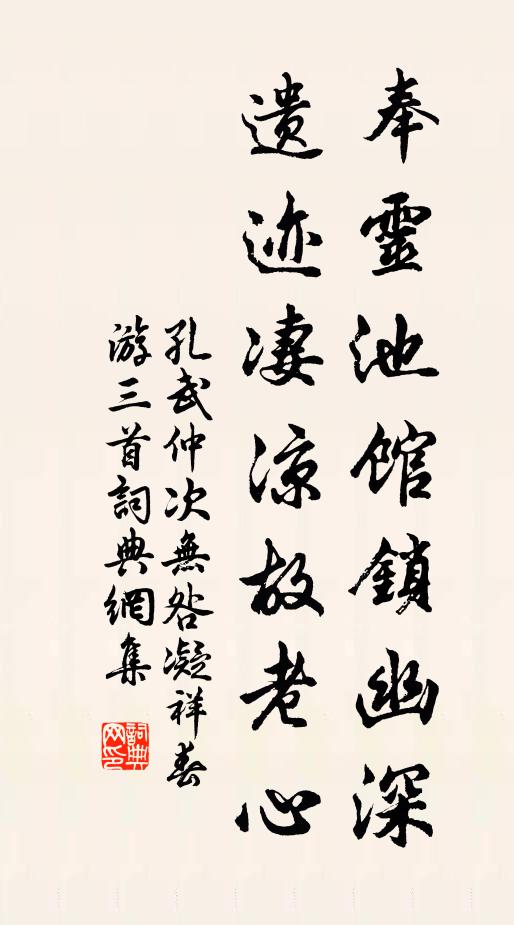 奉靈池館鎖幽深
遺迹凄凉故老心
孔武仲次無咎凝祥春
游三首詞典網集
詞典网印